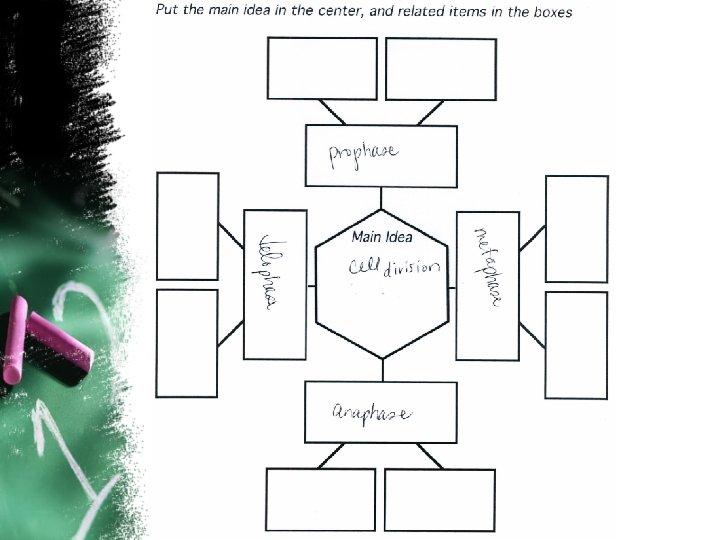 Put the main idea in the center, and related items in the boxes
prophase
Main Idea
cell division
telophase
metaphase
anaphase